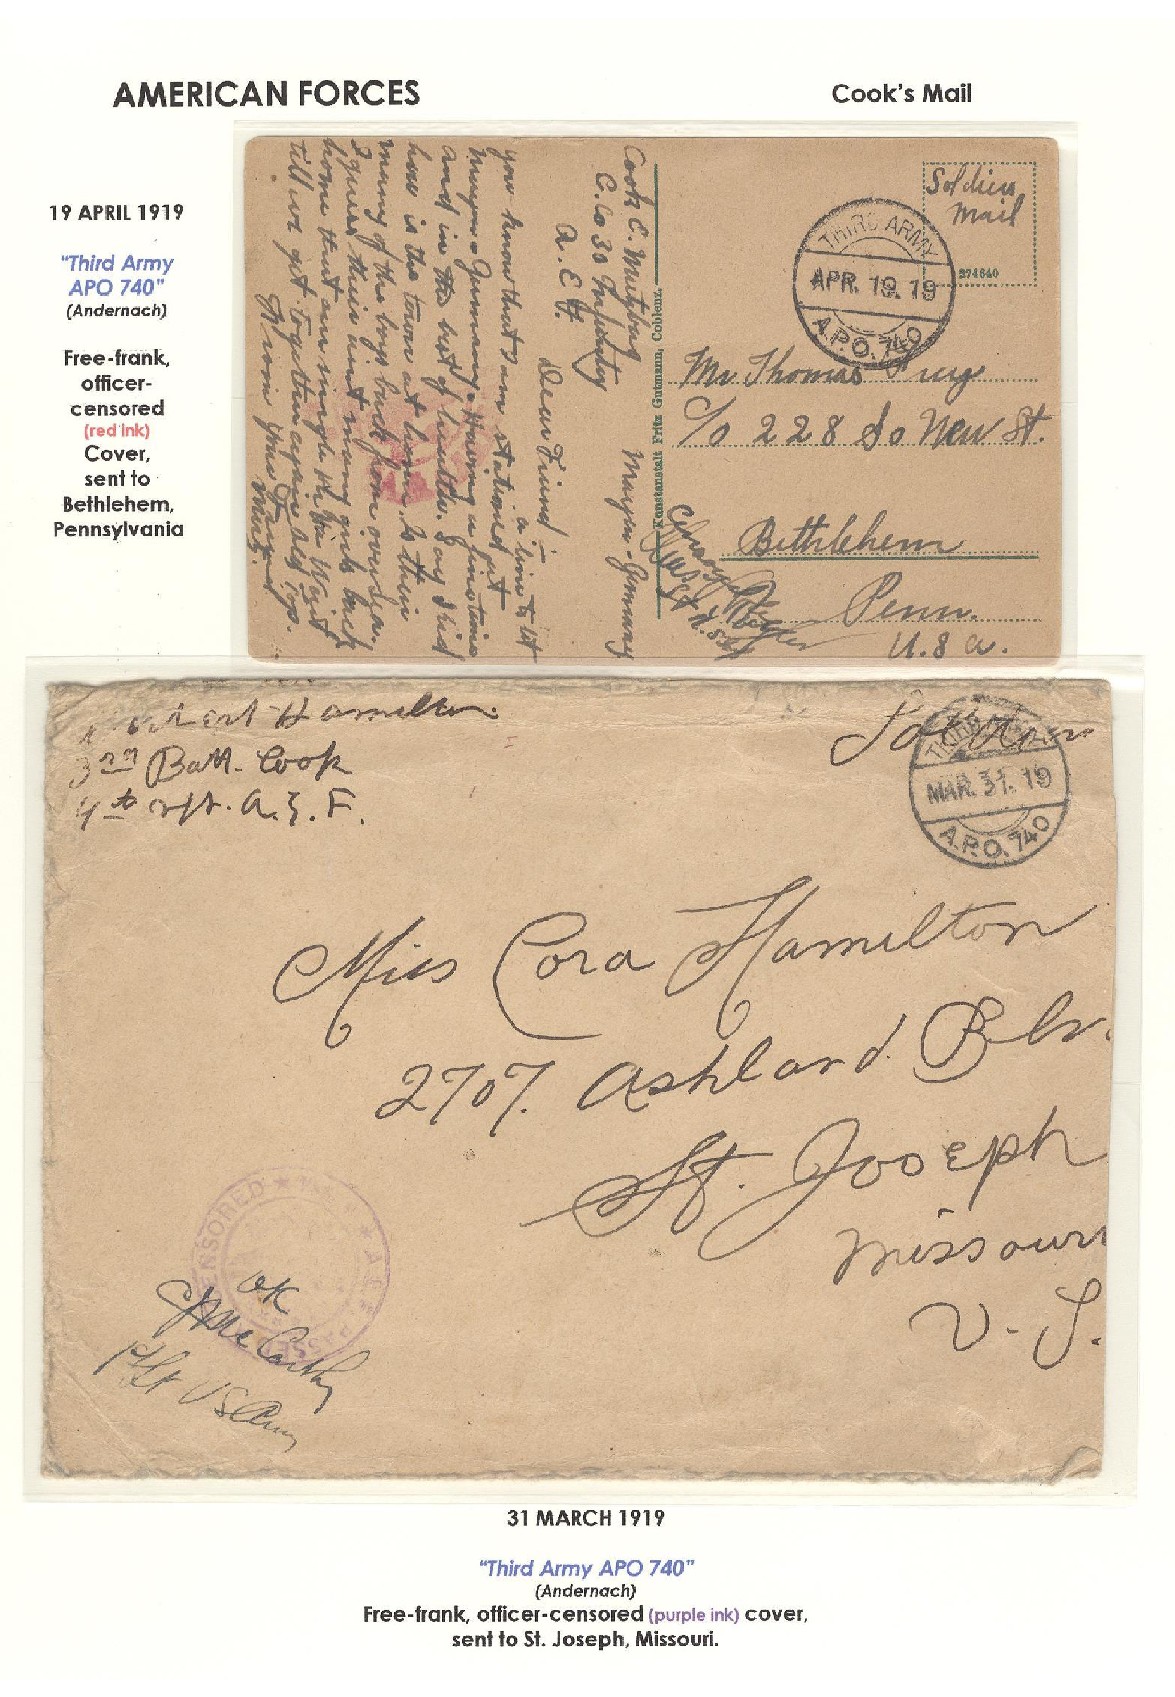 AMERICAN FORCES
Cook's Mail
19 APRIL 1919
"Third Army
APO 740"
(Andernach)
Free-frank,
officer-
censored
(red ink)
Cover,
sent to
Bethlehem,
Pennsylvania
Soldiers
Mail
274640
THIRD ARMY
APR. 19. 19
A.P.O. 740
Mr Thomas
c/o 228 So New St.
Bethlehem
Penn.
U.S.A.
Konstanstalt Fritz Gutmann, Coblenz.
Cook C.
C. Co 30 Infantry
A. E. F.
Mayen-Germany
Dear Friend—
a line to let
you know that I am stationed at
Mayen Germany. Having a fine time
and in the best of health. Say Kid
how is the town at home. Is their
many of the boys back from oversea.
I guess their isnt many girls back
home that are single
till we get together again old top.
From your Friend
Hamilton
3rd Batt. Cook
4th A.E.F.
THIRD ARMY
MAR. 31. 19
A.P.O. 740
Miss Cora Hamilton
2707. Ashland Blv.
St. Joseph
Missouri
U.S.
CENSORED ★ ★ A.E.F. PASSED
OK
McCarthy
1st Lt US Army
31 MARCH 1919
"Third Army APO 740"
(Andernach)
Free-frank, officer-censored (purple ink) cover,
sent to St. Joseph, Missouri.